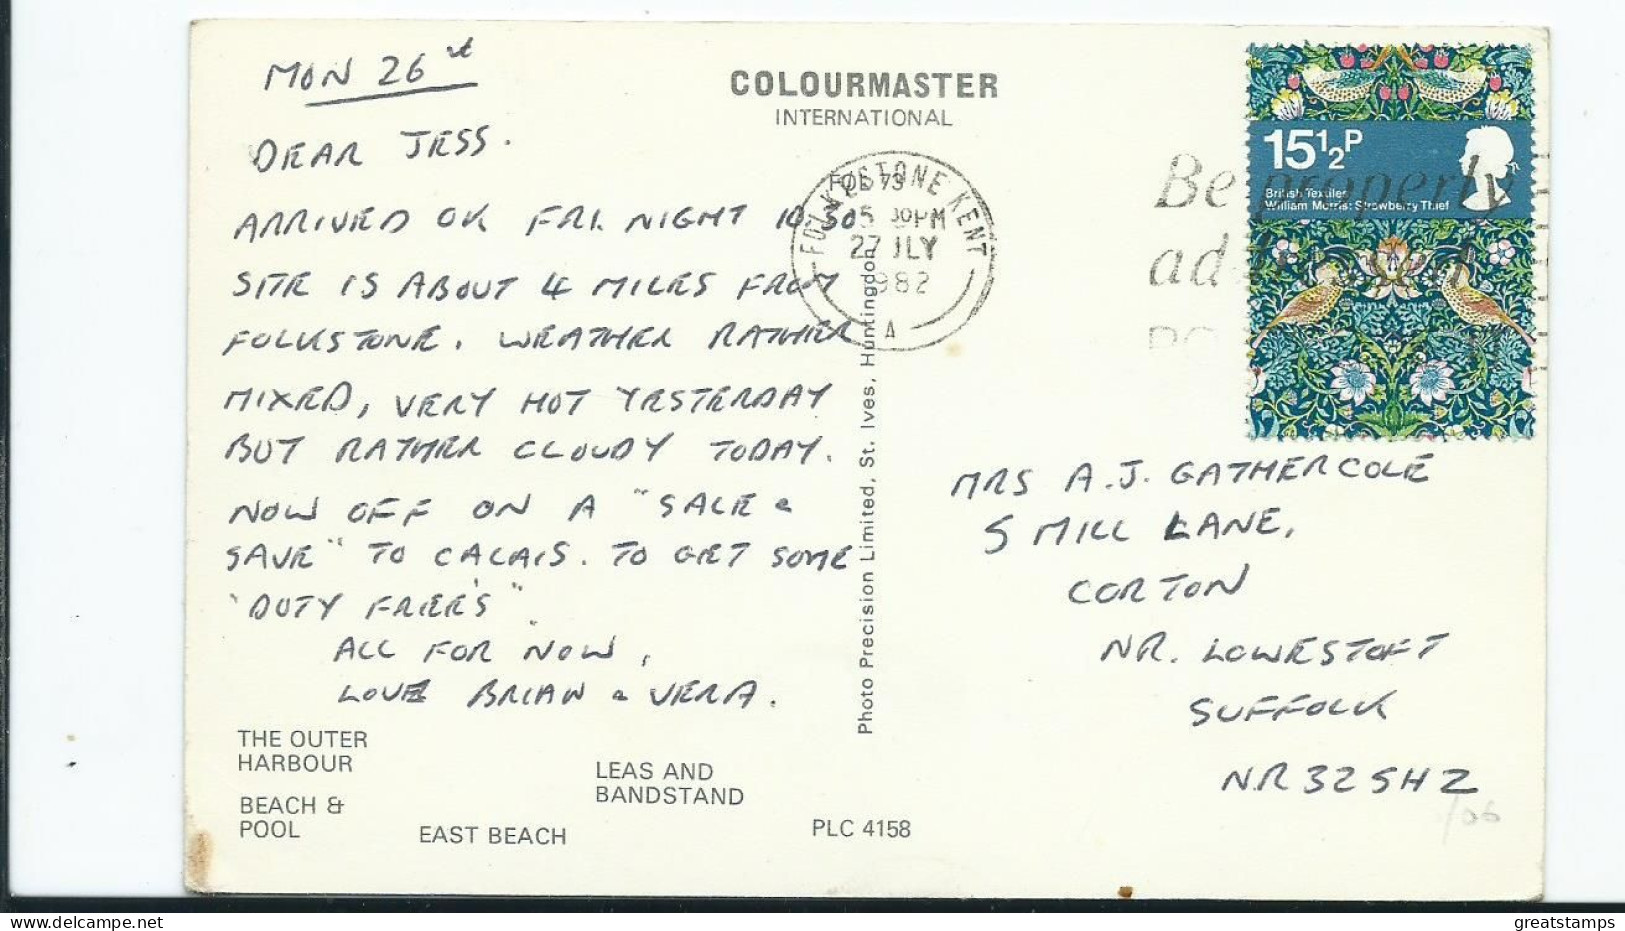 MON 26st
DEAR JESS.
ARRIVED OK FRI. NIGHT 10.30
SITE IS ABOUT 4 MILES FROM
FOLKSTONE. WEATHER RATHER
MIXED, VERY HOT YESTERDAY
BUT RATHER CLOUDY TODAY.
NOW OFF ON A "SALE &
SAVE" TO CALAIS. TO GET SOME
"DUTY FREE'S".
ALL FOR NOW,
LOVE BRIAN & VERA.
THE OUTER
HARBOUR
BEACH &
POOL
EAST BEACH
LEAS AND
BANDSTAND
PLC 4158
COLOURMASTER
INTERNATIONAL
Photo Precision Limited, St. Ives, Huntingdon
FOLKESTONE KENT
FOL 73
5 30PM
27 JLY
1982
A
Be properly
addressed
15½P
British Textiles
William Morris: Strawberry Thief
MRS A.J. GATHERCOLE
5 MILL LANE,
CORTON
NR. LOWESTOFT
SUFFOLK
NR32 5HZ
greatstamps